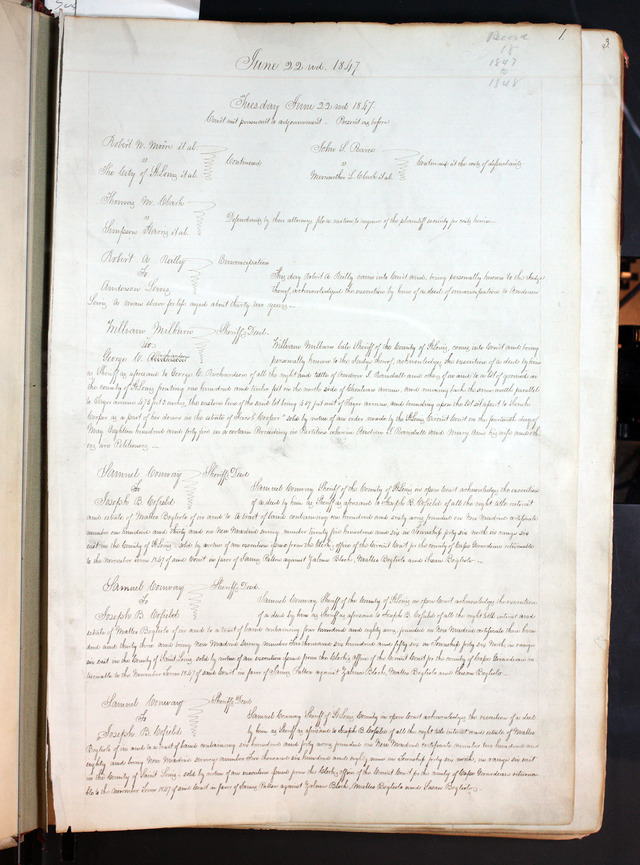 1.
3
Record
18
1847
to
1848
June 22nd. 1847
Tuesday June 22nd 1847.
Court met pursuant to adjournment. Present as before
Robert W. et al.
vs
The City of St Louis et al.
Continued
John S.
vs
Meriwether L. Clark et al.
Continued at the costs of defendants
Thomas M. Clark
vs
Simpson et al.
Defendants by their attorneys file a motion to require of the plaintiff security for costs herein
Robert A. Reilly
To
Anderson Lewis
Emancipation
This day Robert A. Reilly came into Court and, being personally known to the Judge
thereof, acknowledged the execution by him of a deed of emancipation to Anderson
Lewis a man slave for life aged about thirty two years
William Milburn
to
George C.
Sheriffs Deed.
William Milburn late Sheriff of the County of St Louis, comes into Court and being
personally known to the Judge thereof, acknowledges the execution of a deed by him
as Sheriff as aforesaid to George C. Richardson of all the right and title of Andrew S. Randall and others of in and to a lot of ground in
the county of St Louis fronting one hundred and twelve feet on the north side of avenue, and running back the same width parallel
to avenue 473 feet 3 inches, the eastern line of the said lot being 547 feet west of avenue, and bounding upon the lot set apart to Sarah
Cooper as a part of her dower in the estate of Cooper" sold by virtue of an order made by the St Louis Circuit Court on the fourteenth day of
May Eighteen hundred and forty five in a certain Proceeding in Partition wherein Andrew S. Randall and Mary Ann his wife and others
are Petitioners
Samuel Conway
To
Joseph B. Cofield
Sheriffs Deed
Samuel Conway Sheriff of the County of St Louis in open Court acknowledges the execution
of a deed by him as Sheriff as aforesaid to Joseph B. Cofield of all the right title interest
and estate of Matteo Bogliolo of in and to a tract of land containing one hundred and sixty acres founded on New Madrid certificate
number one hundred and thirty and on New Madrid survey number twenty five hundred and six in Township forty six north in range six
east in the County of St Louis, sold by virtue of an execution issued from the Clerk's office of the Circuit Court for the county of Cape Girardeau returnable
to the November Term 1847 of said Court in favor of James against Zalma Block, Matteo Bogliolo and Susan Bogliolo
Samuel Conway
To
Joseph B. Cofield
Sheriffs Deed.
Samuel Conway Sheriff of the County of St Louis in open Court acknowledges the execution
of a deed by him as Sheriff as aforesaid to Joseph B. Cofield of all the right title interest and
estate of Matteo Bogliolo of in and to a tract of land containing four hundred and eighty acres, founded on New Madrid certificate three hun-
dred and thirty three and being New Madrid survey number two thousand six hundred and fifty six in Township forty six North in range
six east in the County of Saint Louis, sold by virtue of an execution issued from the Clerk's office of the Circuit Court for the county of Cape Girardeau re-
turnable to the November Term 1847 of said Court in favor of James against Zalma Block, Matteo Bogliolo and Susan Bogliolo
Samuel Conway
To
Joseph B. Cofield
Sheriffs Deed
Samuel Conway Sheriff of St Louis County in open court acknowledges the execution of a deed
by him as Sheriff as aforesaid to Joseph B. Cofield of all the right title interest and estate of Matteo
Bogliolo of in and to a tract of land containing six hundred and forty acres founded on New Madrid certificate number two hundred and
eighty and being New Madrid survey number two thousand six hundred and eighty nine in Township forty six north, in range six east
in the County of Saint Louis sold by virtue of an execution issued from the Clerk's office of the Circuit Court for the county of Cape Girardeau returna-
ble to the November Term 1847 of said Court in favor of James against Zalma Block, Matteo Bogliolo and Susan Bogliolo.